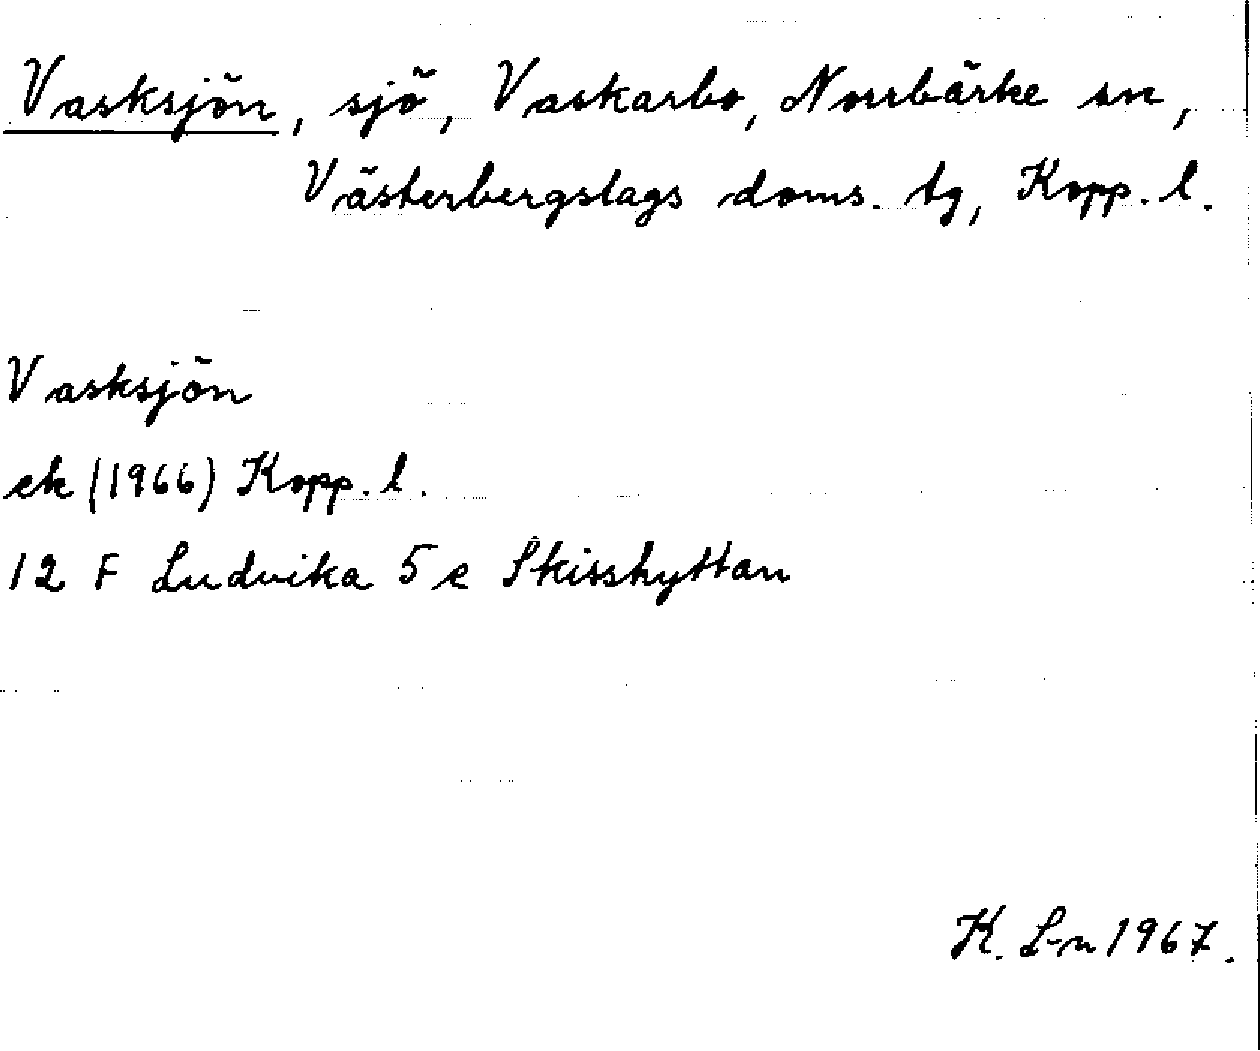 Vasksjön, sjö, Vaskarbo, Norrbärke sn,
Västerbergslags doms. tg, Kopp. l.
Vasksjön
ek (1966) Kopp. l.
12 F Ludvika 5 e Skisshyttan
K. L-n 1967.